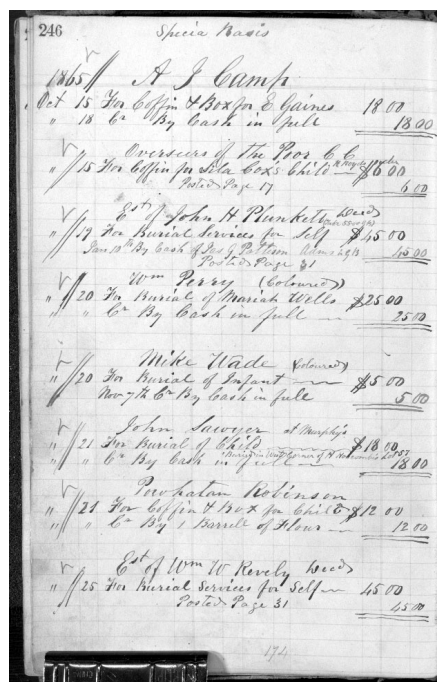 246
Specia Basis
1865 // A J Camp
Oct 15 For Coffin & Box for E Gaines 18 00
" 18 Cr By Cash in full 18 00
Overseers of The Poor C C
" // 15 For Coffin for Lila Coxs Child $6 00
Posted Page 17 6 00
Est of John H Plunkett Decd
" // 19 For Burial Services for Self $45 00
Jan 10th By Cash of Jas J Pattison Adms 45 00
Posted Page 31
Wm Perry (Coloured)
" // 20 For Burial of Mariah Wells $25 00
" " Cr By Cash in full 25 00
Mike Wade (Coloured)
" // 20 For Burial of Infant $5 00
Nov 7th Cr By Cash in full 5 00
John Sawyer at Murphy's
" // 21 For Burial of Child $18 00
" " Cr By Cash in full 18 00
Powhatan Robinson
" // 21 For Coffin & Box for Child $12 00
" " Cr By 1 Barrell of Flour 12 00
Est of Wm W Revely Decd
" // 25 For Burial Services for Self 45 00
Posted Page 31 45 00
174